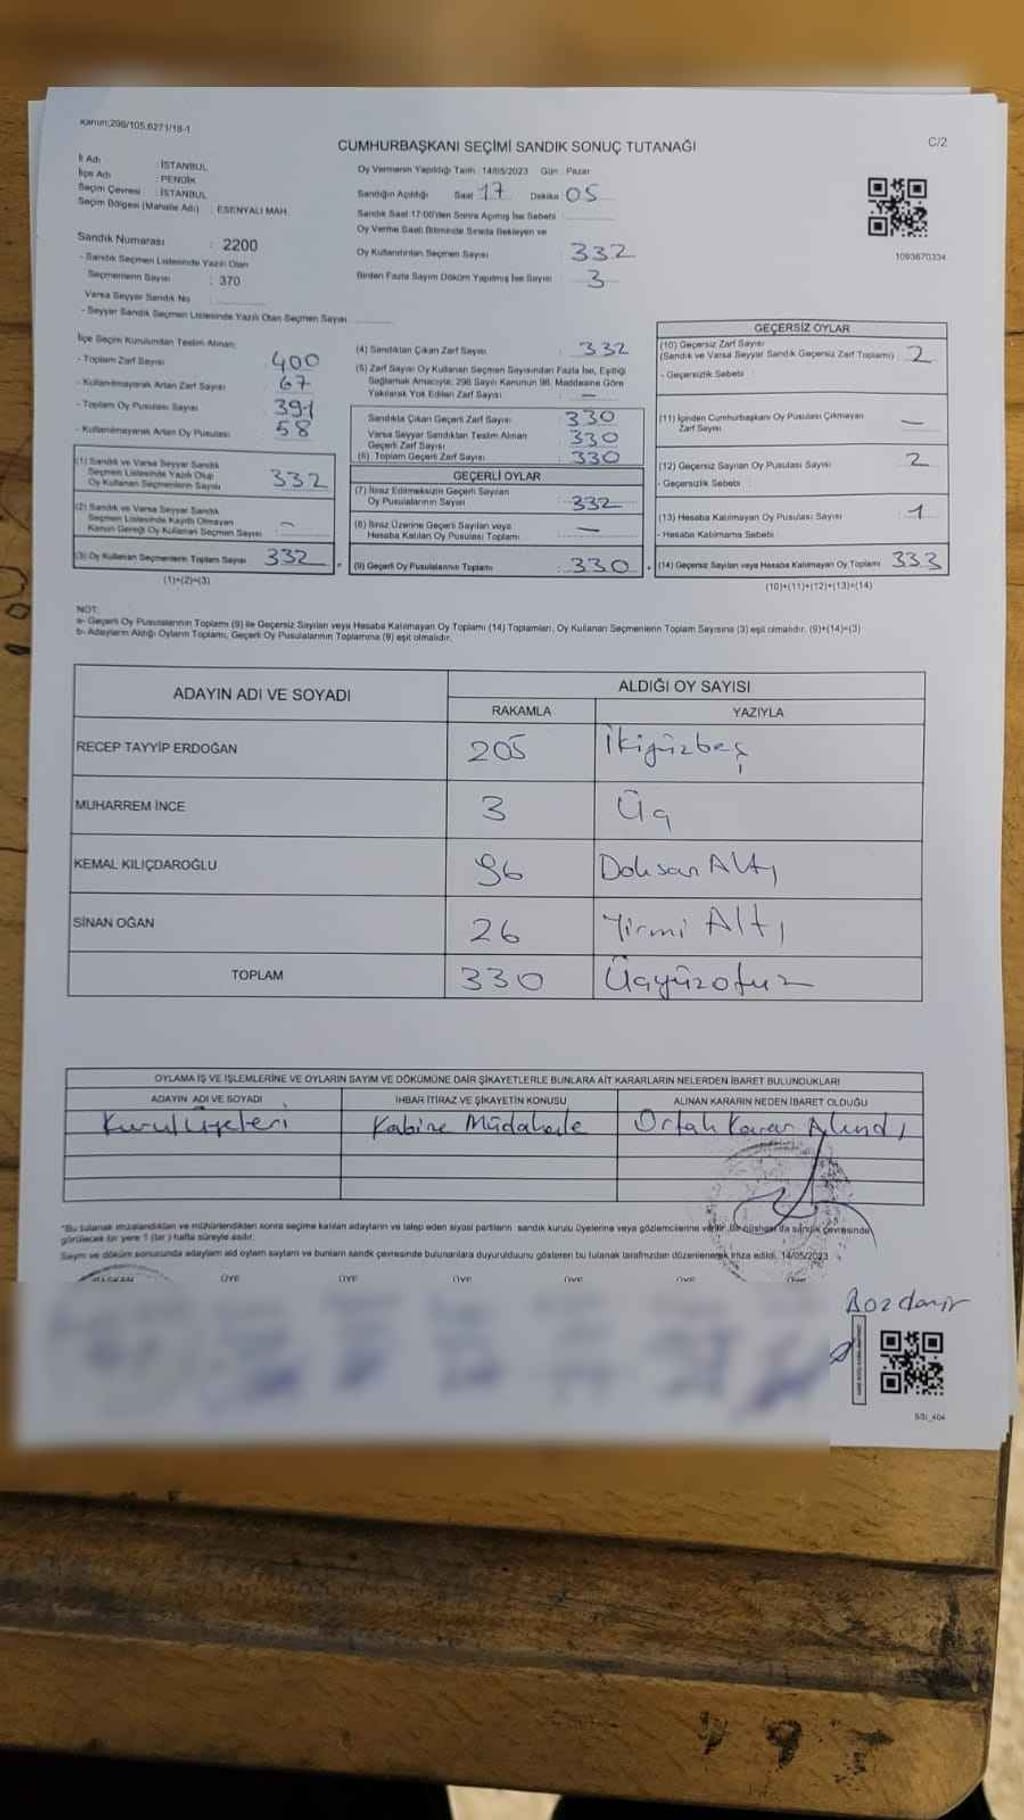 Kanun:298/105,6271/18-1
C/2
CUMHURBAŞKANI SEÇİMİ SANDIK SONUÇ TUTANAĞI
İl Adı : İSTANBUL
İlçe Adı : PENDİK
Seçim Çevresi : İSTANBUL
Seçim Bölgesi (Mahalle Adı) : ESENYALI MAH.
Oy Vermenin Yapıldığı Tarih : 14/05/2023 Gün : Pazar
Sandığın Açıldığı Saat 17 Dakika 05
Sandık Saat 17:00'den Sonra Açılmış İse Sebebi
Oy Verme Saati Bitiminde Sırada Bekleyen ve
Oy Kullandırılan Seçmen Sayısı 332
Birden Fazla Sayım Döküm Yapılmış İse Sayısı 3
1093670334
Sandık Numarası : 2200
- Sandık Seçmen Listesinde Yazılı Olan
Seçmenlerin Sayısı : 370
Varsa Seyyar Sandık No
- Seyyar Sandık Seçmen Listesinde Yazılı Olan Seçmen Sayısı
İlçe Seçim Kurulundan Teslim Alınan;
- Toplam Zarf Sayısı 400
- Kullanılmayarak Artan Zarf Sayısı 67
- Toplam Oy Pusulası Sayısı 391
- Kullanılmayarak Artan Oy Pusulası 58
(1) Sandık ve Varsa Seyyar Sandık
Seçmen Listesinde Yazılı Olup
Oy Kullanan Seçmenlerin Sayısı 332
(2) Sandık ve Varsa Seyyar Sandık
Seçmen Listesinde Kayıtlı Olmayan
Kanun Gereği Oy Kullanan Seçmen Sayısı –
(3) Oy Kullanan Seçmenlerin Toplam Sayısı 332
(1)+(2)=(3)
(4) Sandıktan Çıkan Zarf Sayısı 332
(5) Zarf Sayısı Oy Kullanan Seçmen Sayısından Fazla İse, Eşitliği
Sağlamak Amacıyla; 298 Sayılı Kanunun 98. Maddesine Göre
Yakılarak Yok Edilen Zarf Sayısı –
Sandıkta Çıkan Geçerli Zarf Sayısı 330
Varsa Seyyar Sandıktan Teslim Alınan
Geçerli Zarf Sayısı 330
(6) Toplam Geçerli Zarf Sayısı 330
GEÇERLİ OYLAR
(7) İtiraz Edilmeksizin Geçerli Sayılan
Oy Pusulalarının Sayısı 332
(8) İtiraz Üzerine Geçerli Sayılan veya
Hesaba Katılan Oy Pusulası Toplamı –
(9) Geçerli Oy Pusulalarının Toplamı : 330
GEÇERSİZ OYLAR
(10) Geçersiz Zarf Sayısı
(Sandık ve Varsa Seyyar Sandık Geçersiz Zarf Toplamı) 2
- Geçersizlik Sebebi
(11) İçinden Cumhurbaşkanı Oy Pusulası Çıkmayan
Zarf Sayısı –
(12) Geçersiz Sayılan Oy Pusulası Sayısı 2
- Geçersizlik Sebebi
(13) Hesaba Katılmayan Oy Pusulası Sayısı 1
- Hesaba Katılmama Sebebi
(14) Geçersiz Sayılan veya Hesaba Katılmayan Oy Toplamı 333
(10)+(11)+(12)+(13)=(14)
NOT:
a- Geçerli Oy Pusulalarının Toplamı (9) ile Geçersiz Sayılan veya Hesaba Katılmayan Oy Toplamı (14) Toplamları, Oy Kullanan Seçmenlerin Toplam Sayısına (3) eşit olmalıdır. (9)+(14)=(3)
b- Adayların Aldığı Oyların Toplamı, Geçerli Oy Pusulalarının Toplamına (9) eşit olmalıdır.
ADAYIN ADI VE SOYADI
ALDIĞI OY SAYISI
RAKAMLA YAZIYLA
RECEP TAYYİP ERDOĞAN 205 İkiyüzbeş
MUHARREM İNCE 3 Üç
KEMAL KILIÇDAROĞLU 96 Doksan Altı
SİNAN OĞAN 26 Yirmi Altı
TOPLAM 330 Üçyüzotuz
OYLAMA İŞ VE İŞLEMLERİNE VE OYLARIN SAYIM VE DÖKÜMÜNE DAİR ŞİKAYETLERLE BUNLARA AİT KARARLARIN NELERDEN İBARET BULUNDUKLARI
ADAYIN ADI VE SOYADI İHBAR İTİRAZ VE ŞİKAYETİN KONUSU ALINAN KARARIN NEDEN İBARET OLDUĞU
Kurul Üyeleri Kabine Müdahale Ortak Karar Alındı
*Bu tutanak imzalandıktan ve mühürlendikten sonra seçime katılan adayların ve talep eden siyasi partilerin sandık kurulu üyelerine veya gözlemcilerine verilir. Bir nüshası da sandık çevresinde
görülecek bir yere 1 (bir) hafta süreyle asılır.
Sayım ve döküm sonunda adayların aldığı oyların sayıları ve bunların sandık çevresinde bulunanlara duyurulduğunu gösteren bu tutanak tarafımızdan düzenlenerek imza edildi. 14/05/2023
BAŞKAN ÜYE ÜYE ÜYE ÜYE ÜYE ÜYE
Bozdemir